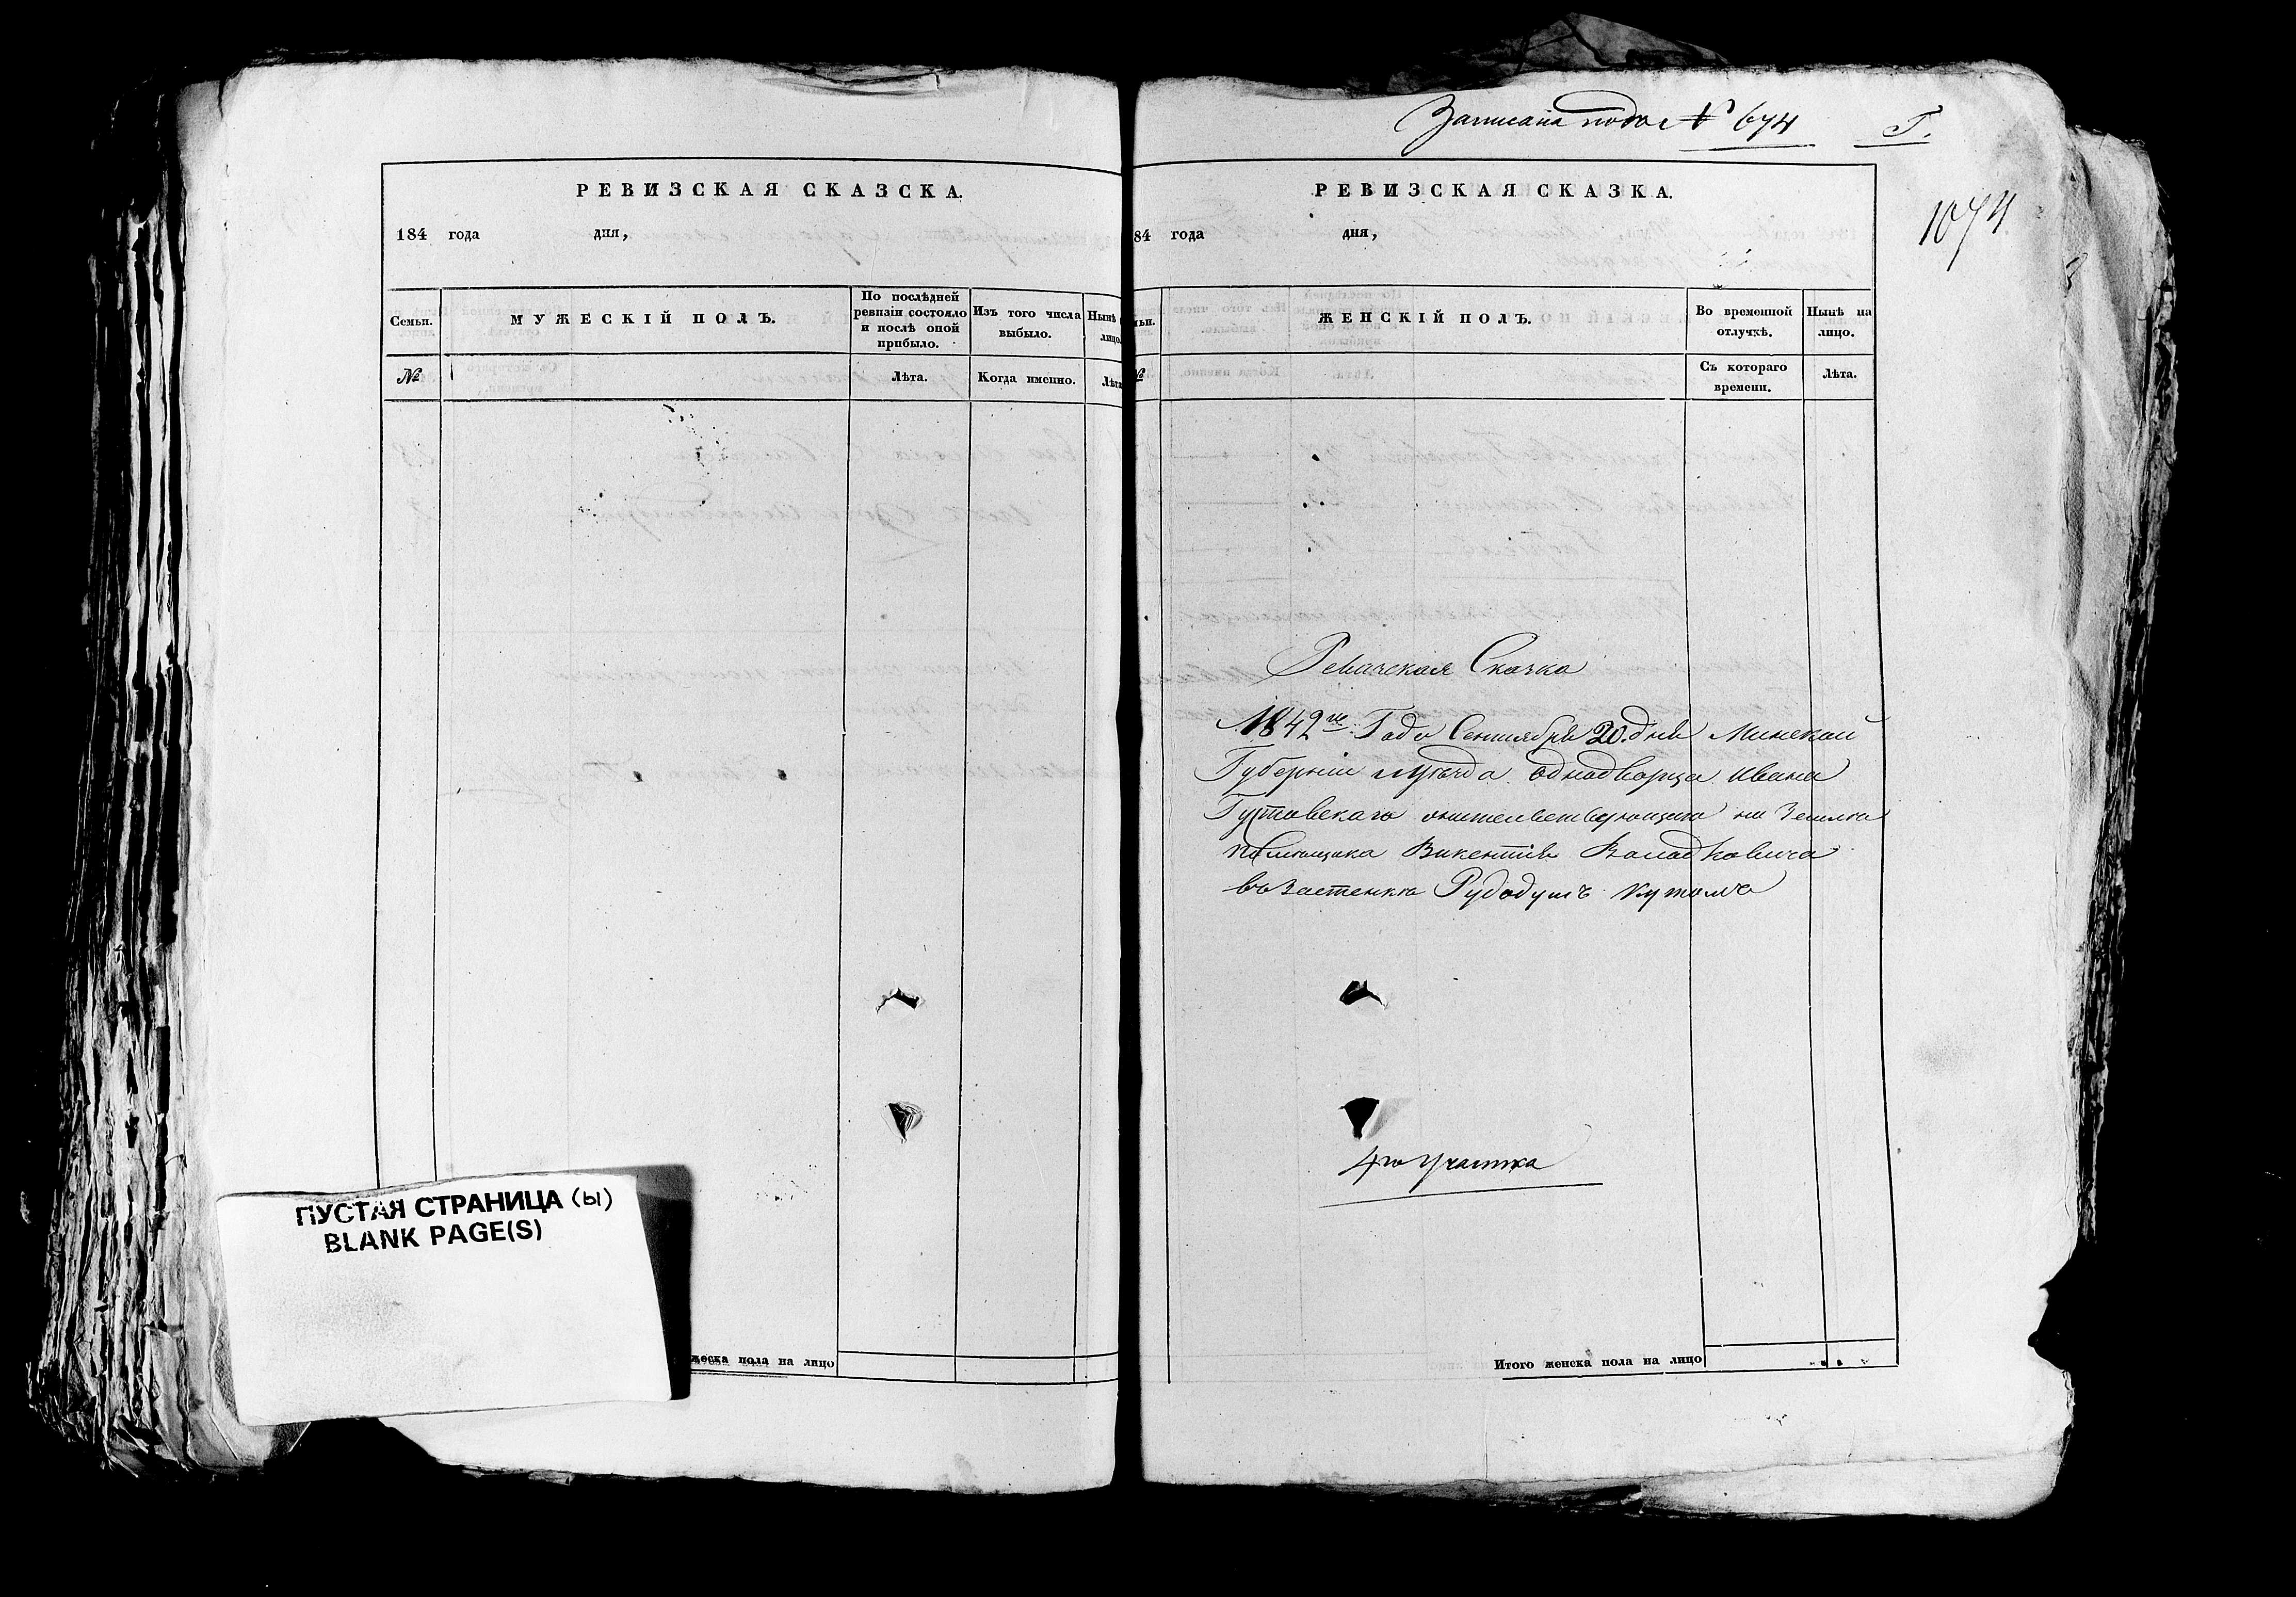 РЕВИЗСКАЯ СКАЗСКА.
184 года дня,
Семьи. МУЖЕСКІЙ ПОЛЪ. По послѣдней ревизіи состояло и послѣ оной прибыло. Изъ того числа выбыло. Нынѣ лицо.
№ Лѣта. Когда именно. Лѣта
ПУСТАЯ СТРАНИЦА (ы)
BLANK PAGE(S)
жеска пола на лицо
Записана подъ № 674 Г.
1074
РЕВИЗСКАЯ СКАЗКА.
84 года дня,
ьи. ЖЕНСКІЙ ПОЛЪ. Во временной отлучкѣ. Нынѣ на лицо.
№ Съ котораго времени. Лѣта.
Ревизская Сказка
1842го Года Сентября 20 дня Минской
Губерніи и уѣзда однодворца Ивана
Гутовскаго жительствующаго на Землѣ
помѣщика Викентія Володковича
въ Застенкѣ
4го участка
Итого женска пола на лицо